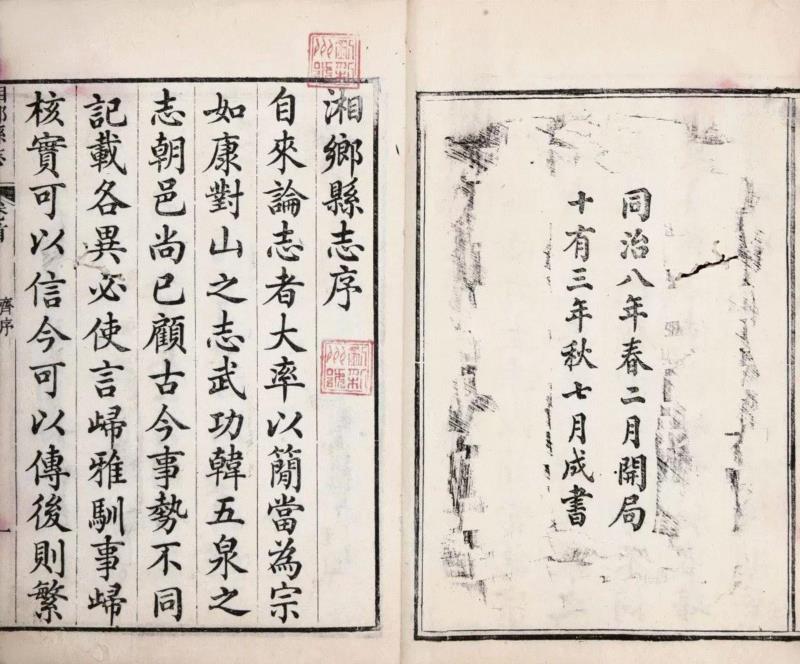 同治八年春二月開局
十有三年秋七月成書
湘鄉縣志序
自來論志者大率以簡當為宗
如康對山之志武功韓五泉之
志朝邑尚已顧古今事勢不同
記載各異必使言歸雅馴事歸
核實可以信今可以傳後則繁
齊序
一